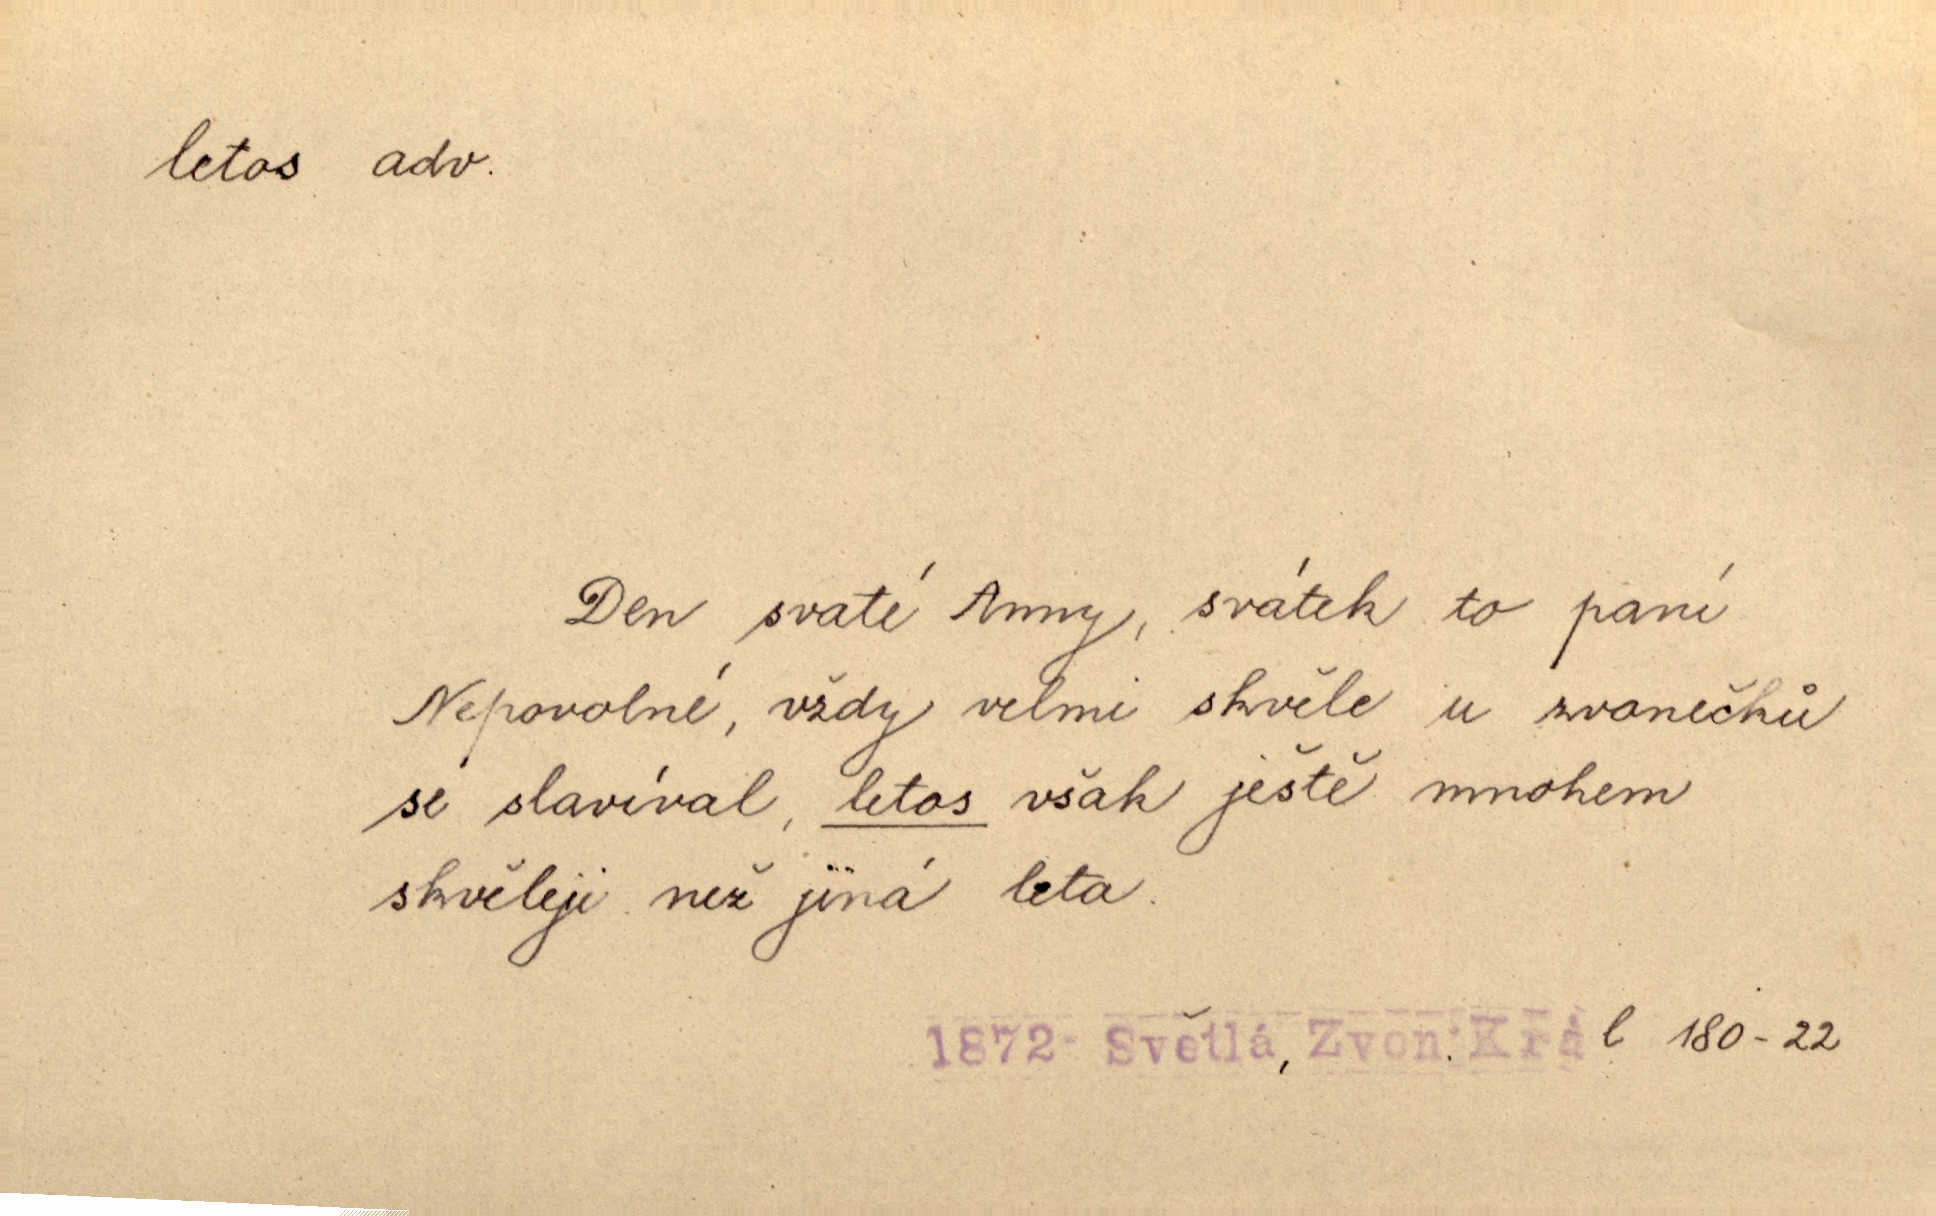 letos adv.
Den svaté Anny, svátek to paní
Nepovolné, vždy velmi skvěle u zvonečků
se slavíval, letos však ještě mnohem
skvěleji než jiná leta.
1872 Světlá, Zvon. Král 180-22